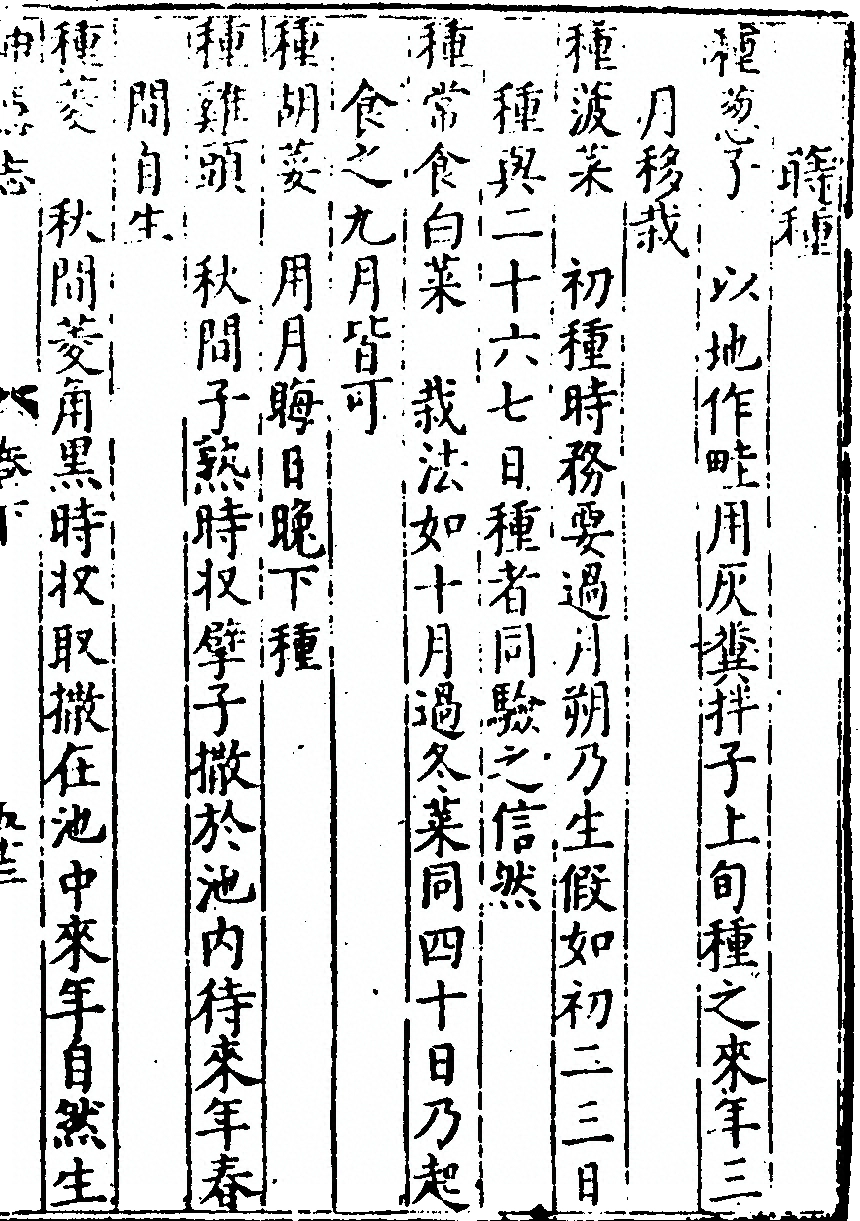 蒔種
種葱子　以地作畦用灰糞拌子上旬種之來年三
月移栽
種菠菜　初種時務要過月朔乃生假如初二三日
種與二十六七日種者同驗之信然
種常食白菜　栽法如十月過冬菜同四十日乃起
食之九月皆可
種胡荽　用月晦日晚下種
種雞頭　秋間子熟時収擘子撒於池內待來年春
間自生
種菱　秋間菱角黑時収取撒在池中來年自然生
卷下